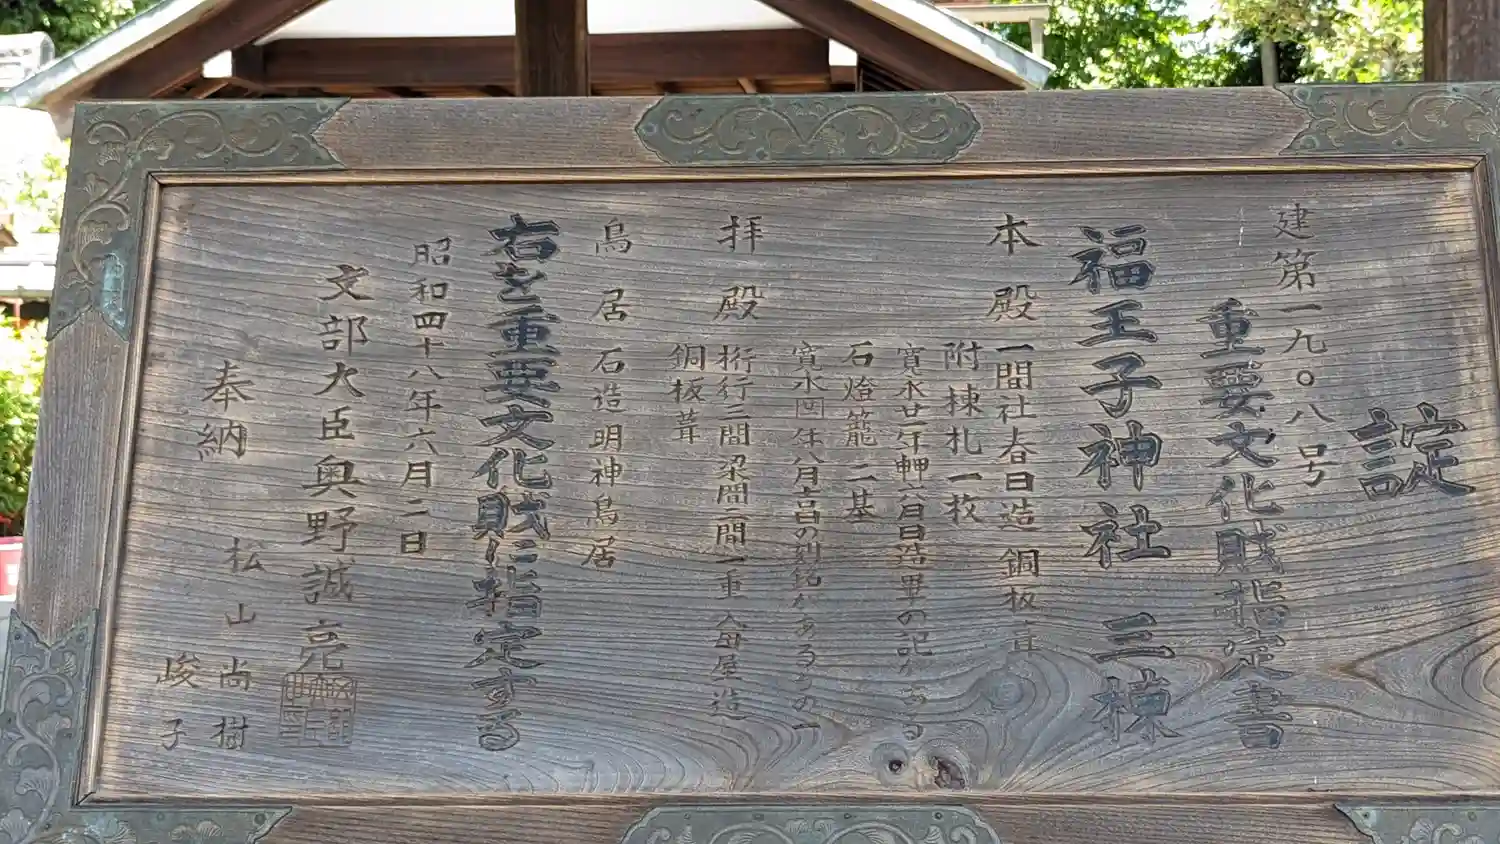 諚
建第一九〇八号
重要文化財指定書
福王子神社 三棟
本殿 一間社春日造 銅板葺
附棟札一枚
寛永廿一年 造畢の記がある
石燈籠二基
寛永 年八月吉日の刻銘があるもの一
拝殿 桁行三間 梁間二間 一重 入母屋造
銅板葺
鳥居 石造明神鳥居
右を重要文化財に指定する
昭和四十八年六月二日
文部大臣 奥野誠亮
奉納 松山尚樹
峻子